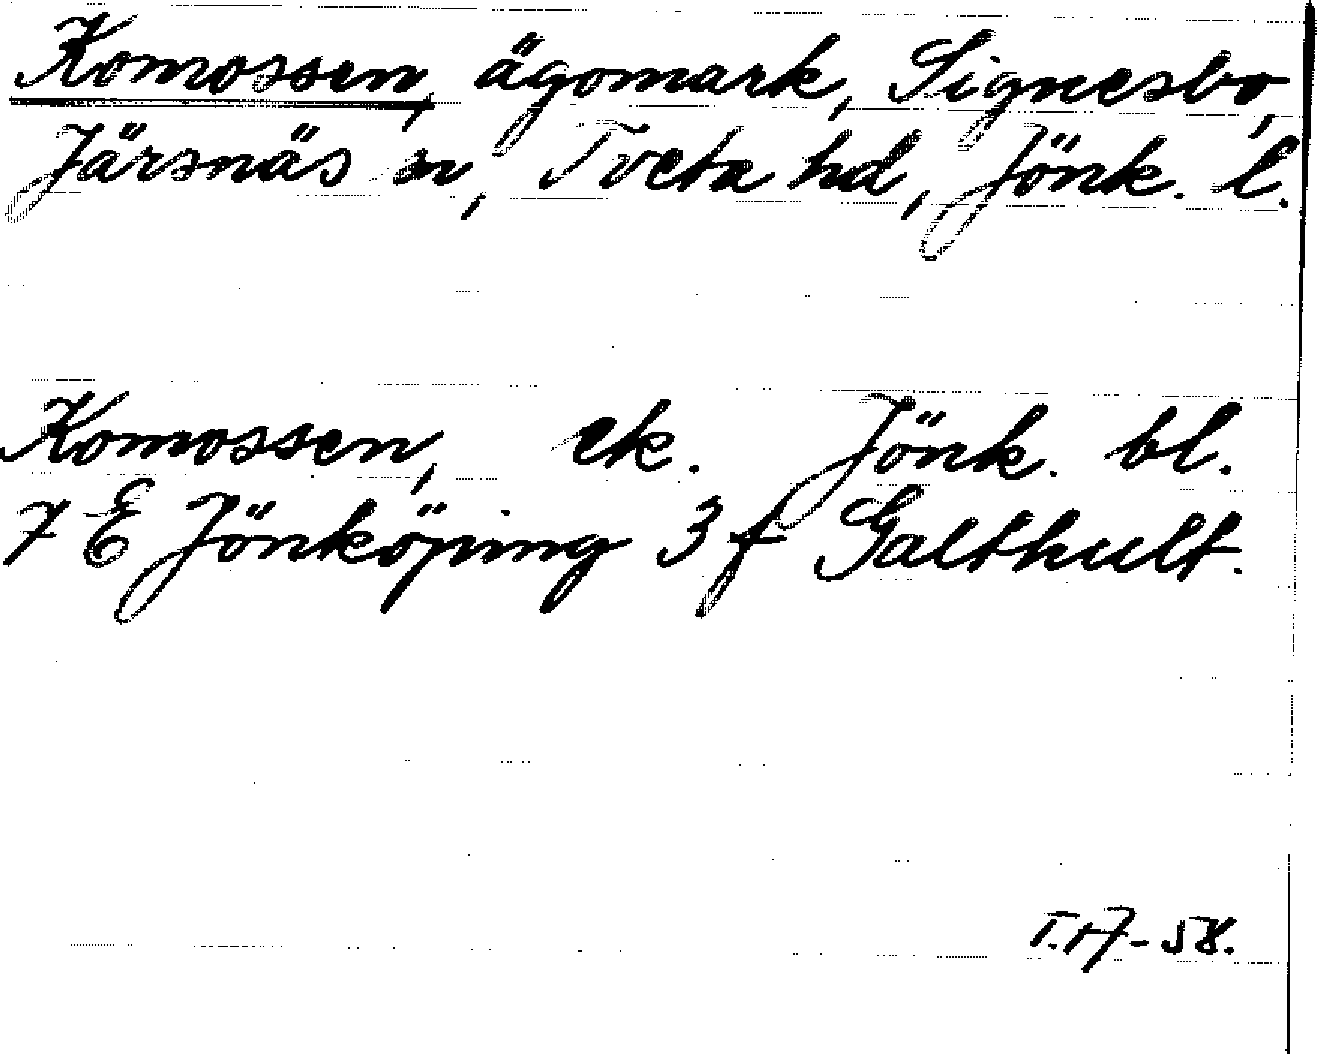 Komossen, ägomark, Signesbo,
Järsnäs sn, Tveta hd, Jönk. l.
Komossen, ek. Jönk. bl.
7 E Jönköping 3 f Galthult.
T.17-58.